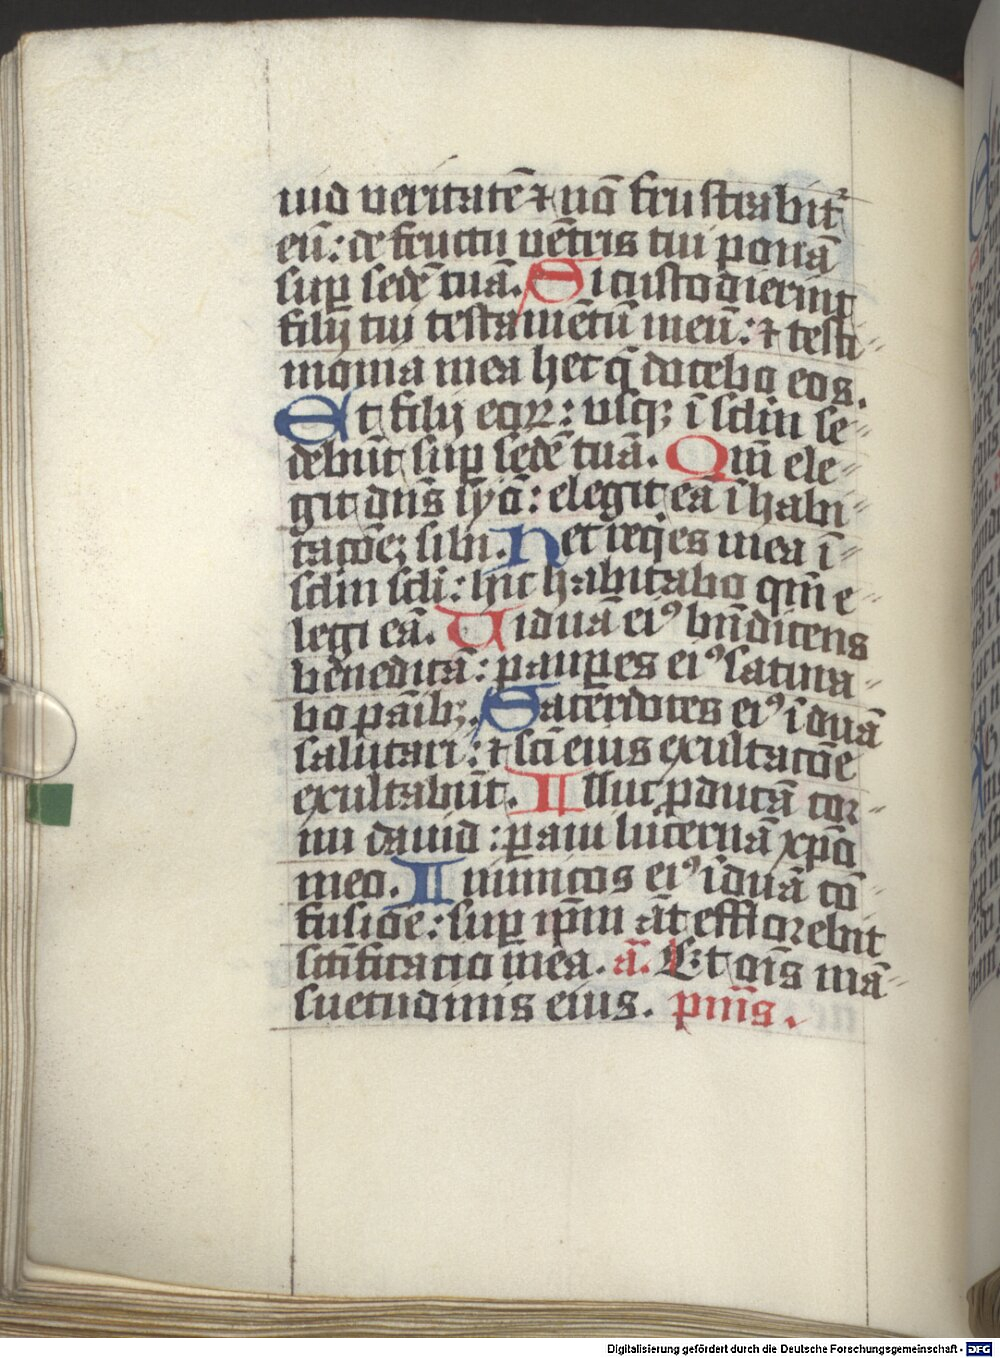 uid veritatē ⁊ nō frustrabit᷑
eū : de fructu vētris tui ponā
suꝑ sedē tuā. Si custodierint
filij tui testamētū meū : ⁊ testi⸗
monia mea hec q̄ docebo eos.
Et filij eoꝝ : vsqꝫ ī sclm se⸗
debūt suꝑ sedē tuā. Qm̄ ele⸗
git dn̄s syō : elegit eā ī habi⸗
tacōeꝫ sibi. Hec req̄es mea ī⸗
sclm scli : hic habitabo qm̄ e⸗
legi eā. Uiduā eiꝰ bn̄dicens
benedicā : pauꝑes eiꝰ satura⸗
bo panibꝫ. Sacerdotes eiꝰ īduā
salutari : ⁊ sc̄i eius exultacōe
exultabūt. Illuc ꝓducā cor⸗
nu dauid : ꝑaui lucernā xp̄o
meo. Inimicos eiꝰ īduā cō⸗
fusioe : suꝑ ip̄m āt efflorebit
sc̄ificatio mea. a᷑. Et oīs mā⸗
suetudinis eius. pm̄s.
Digitalisierung gefördert durch die Deutsche Forschungsgemeinschaft - DFG